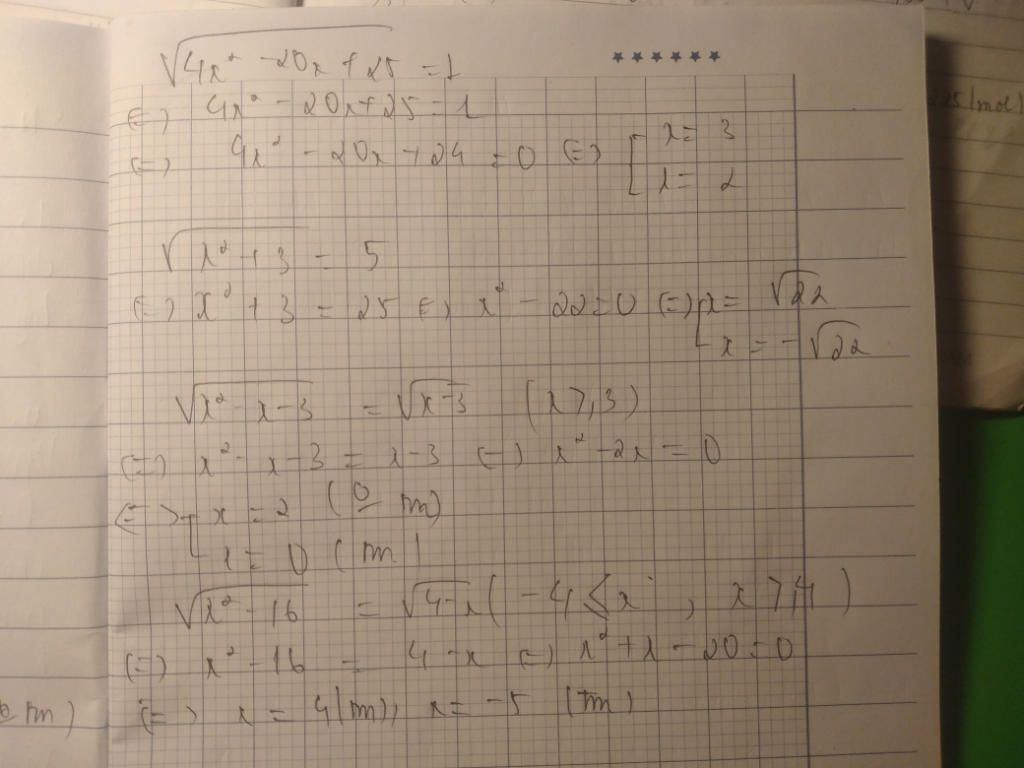 √(4x² - 20x + 25) = 1
(=) 4x² - 20x + 25 = 1
(=) 4x² - 20x + 24 = 0 (=) [ x = 3
x = 2
√(x² + 3) = 5
(=) x² + 3 = 25 (=) x² - 22 = 0 (=) [ x = √22
x = -√22
√(x² - x - 3) = √(x-3) (x ≥ 3)
(=) x² - x - 3 = x - 3 (=) x² - 2x = 0
(=) [ x = 2 (o tm)
x = 0 (tm)
√(x² - 16) = √(4-x) ( -4 ≤ x , x ≥ 4 )
(=) x² - 16 = 4 - x (=) x² + x - 20 = 0
(=) x = 4 (tm), x = -5 (tm)
tm)
25 (mol)